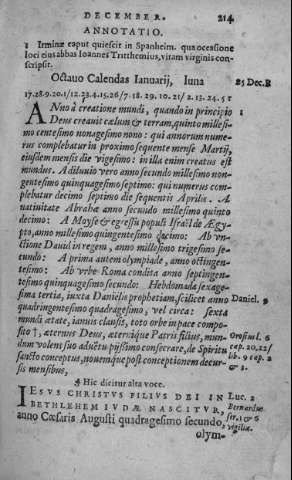 DECEMBER. 214
ANNOTATIO.
1 Irminæ caput quiescit in Spanheim. qua occessione
loci eius abbas Ioannes Tritthemius, vitam virginis con-
scripsit.
Octauo Calendas Ianuarij, luna 25 Dec. B
17.28.9.20.1/12.23.4.15.26/7.18. 29.10.21/2.13.24.5 1
ANno à creatione mundi, quando in principio 1
Deus creauit cælum & terram, quinto millesi-
mo centesimo nonagesimo nono: qui annorum nume-
rus complebatur in proximo sequente mense Martij,
eiusdem mensis die vigesimo: in illa enim creatus est
mundus. A diluuio vero anno secundo millesimo non-
gentesimo quinquagesimo septimo: qui numerus com-
plebatur decimo septimo die sequentis Aprilis. A
natiuitate Abrahæ anno secundo millesimo quinto
decimo: A Moyse & egressu populi Israël de Ægy-
pto, anno millesimo quingentesimo decimo: Ab vn-
ctione Dauid in regem, anno millesimo trigesimo se-
cundo: A prima autem olympiade, anno octingen-
tesimo: Ab vrbe Roma condita anno septingen-
tesimo quinquagesimo secundo: Hebdomada sexage-
sima tertia, iuxta Danielis prophetiam, scilicet anno Daniel. 9
quadringentesimo quadragesimo, vel circa: sexta
mundi ætate, ianuis clausis, toto orbe in pace compo-
sito †, æternus Deus, æternique Patris filius, mun- Orosius l. 6
dum volens suo aduẽtu pijssimo consecrare, de Spiritu cap. 20,22/
sancto conceptus, nouemque post conceptionem decur- lib. 9 cap. 2
sis mensibus, & 3.
Hic dicitur alta voce.
IESVS CHRISTVS FILIVS DEI IN Luc. 2
BETHLEHEM IVDÆ NASCITVR, Bernardus
anno Cæsaris Augusti quadragesimo secundo, ser. 1 & 6
vigiliæ.
olym-